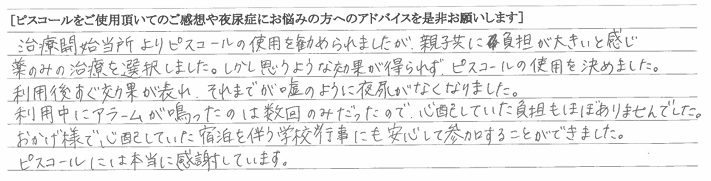 [ピスコールをご使用頂いてのご感想や夜尿症にお悩みの方へのアドバイスを是非お願いします]
治療開始当所よりピスコールの使用を勧められましたが、親子共に負担が大きいと感じ
薬のみの治療を選択しました。しかし思うような効果が得られず、ピスコールの使用を決めました。
利用後すぐ効果が表れ、それまでが嘘のように夜尿がなくなりました。
利用中にアラームが鳴ったのは数回のみだったので、心配していた負担もほぼありませんでした。
おかげ様で、心配していた宿泊を伴う学校行事にも安心して参加することができました。
ピスコールには本当に感謝しています。